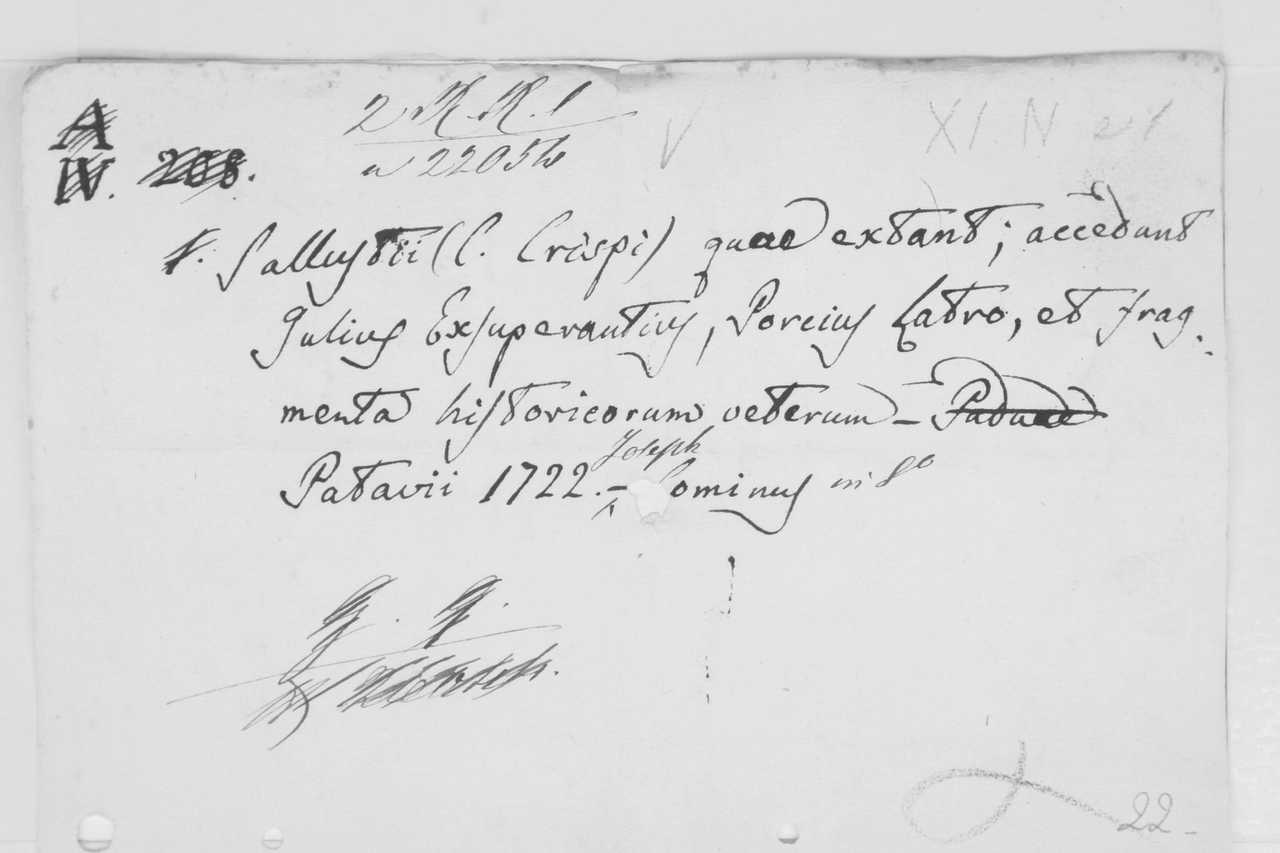 A
IV. 208.
2 K.K.1
V
XI N 21
Sallustii (C. Crispi) quae extant; accedunt
Julius Exsuperantius, Porcius Latro, et frag-
menta historicorum veterum – Paduae
Joseph
Patavii 1722. – Cominus in 8o
22